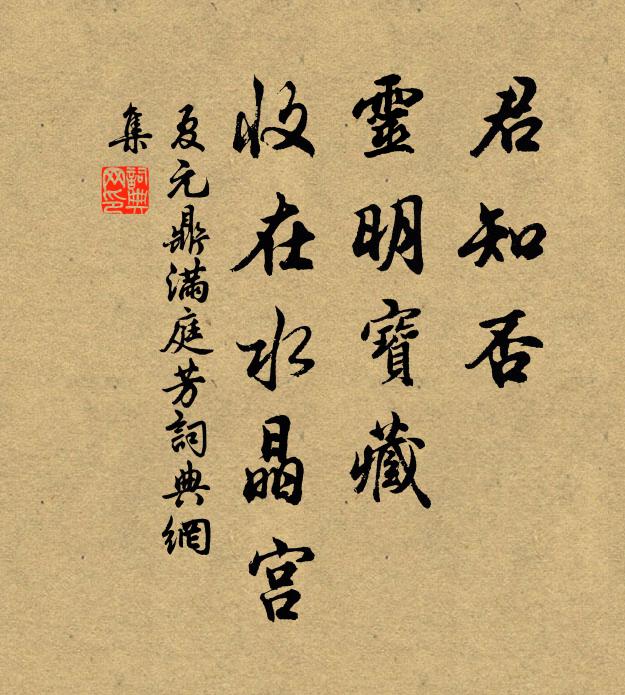 君知否
靈明寶藏
收在水晶宮
夏元鼎滿庭芳詞典網
集
詞典
网印